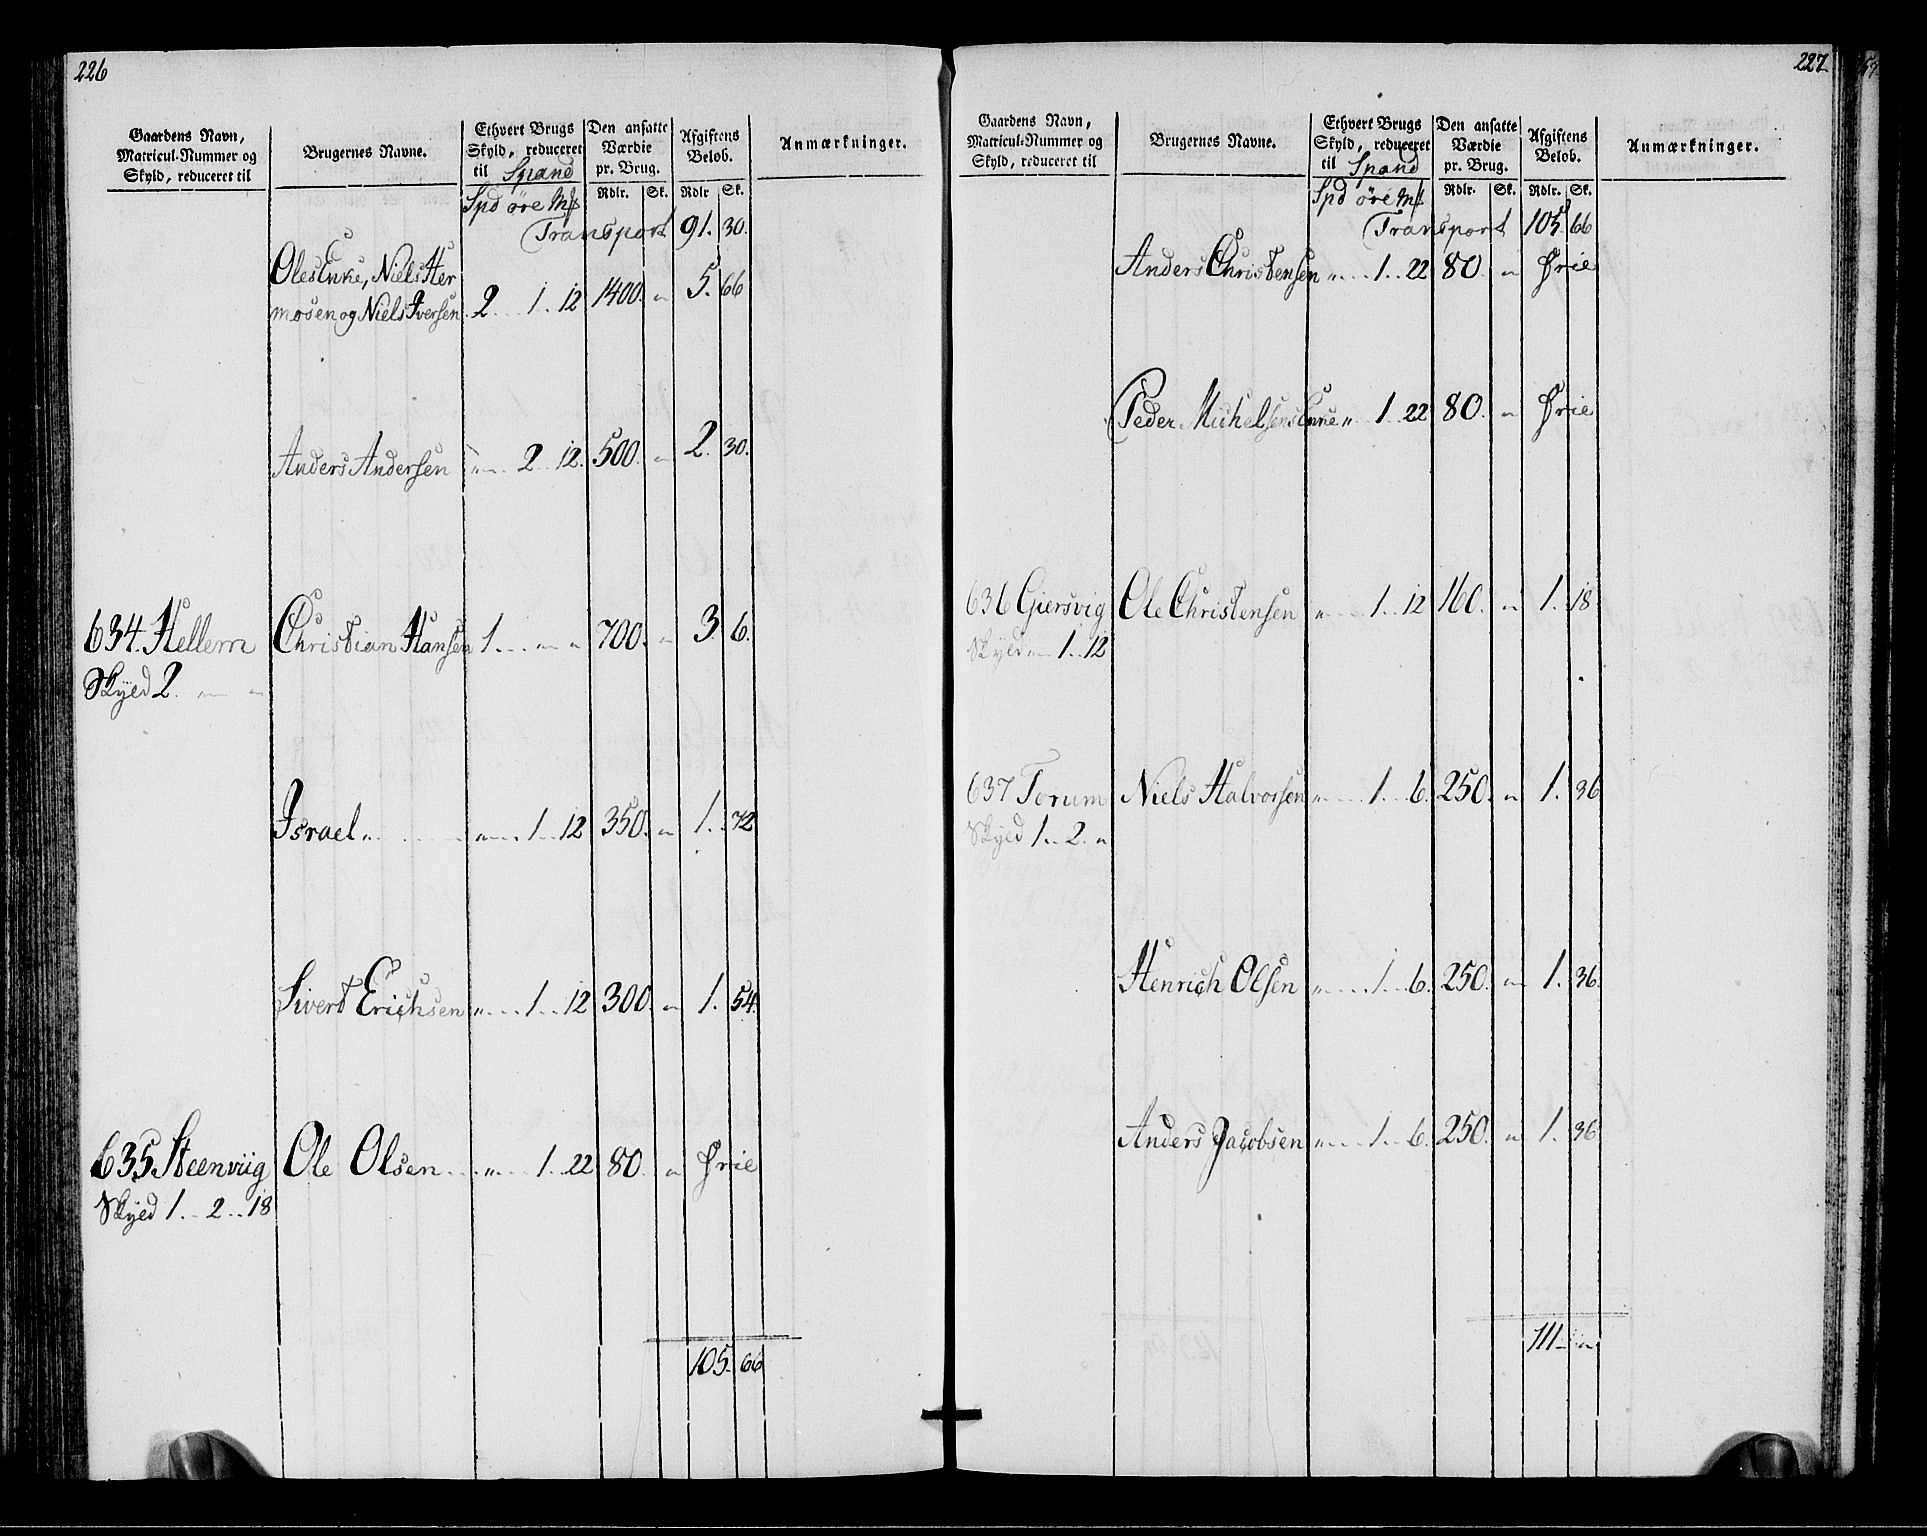 226
Gaardens Navn, Matricul-Nummer og Skyld, reduceret til
Brugernes Navne.
Ethvert Brugs Skyld, reduceret til Spand
Den ansatte Værdie pr. Brug.
Afgiftens Beløb.
Anmærkninger.
Spd øre Mk Rdlr. Sk. Rdlr Sk.
Transport 91. 30.
Oles Enke, Niels Her
mosen og Niels Iversen 2 . . . 1 . . 12 1400. „ 5. 66
Anders Andersen „ . . 2 . . 12. 500. „ 2. 30.
634. Hellem Christian Hansen 1 . . . „ „ 700. „ 3. 6.
Skyld 2. „ „
Israel „ . . . . „ . . . 1 . . 12 350. „ 1. 72
Sivert Erichsen „ . . . 1 . . 12 300. „ 1. 54.
635 Steenviig Ole Olsen . . „ . . . 1 . . 22 80. „ Frie
Skyld 1 . . 2 . . 18
105. 66
227
Gaardens Navn, Matricul-Nummer og Skyld, reduceret til
Brugernes Navne.
Ethvert Brugs Skyld, reduceret til Spand
Den ansatte Værdie pr. Brug.
Afgiftens Beløb.
Anmærkninger.
Spd øre Mk Rdlr. Sk. Rdlr. Sk.
Transport 105 66
Anders Christensen „ . . . 1 . . 22 80. „ Frie
Peder Michelsens Enke „ . . 1 . 22 80. „ Frie
636 Giersvig Ole Christensen „ . . . 1 . . 12 160. „ 1. 18
Skyld „ 1 . . 12
637 Torum Niels Halvorsen „ . . . 1 . . 6. 250. „ 1. 36
Skyld 1 . . 2 . „
Henrich Olsen „ . . . 1 . . 6. 250. „ 1. 36.
Anders Jacobsen „ . . . 1 . . 6. 250. „ 1. 36
111 „